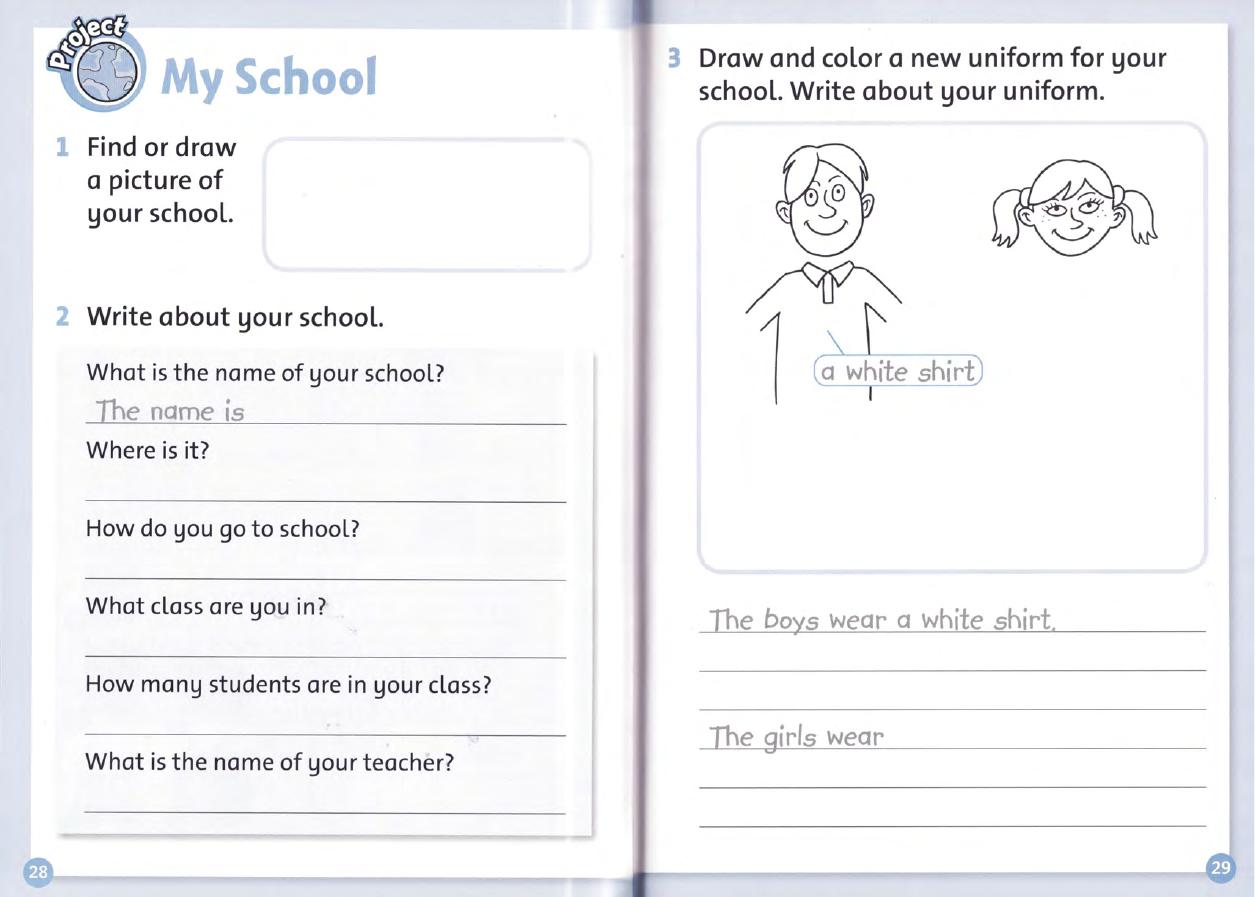 Project
My School
1 Find or draw
a picture of
your school.
2 Write about your school.
What is the name of your school?
The name is
Where is it?
How do you go to school?
What class are you in?
How many students are in your class?
What is the name of your teacher?
28
3 Draw and color a new uniform for your
school. Write about your uniform.
a white shirt
The boys wear a white shirt.
The girls wear
29